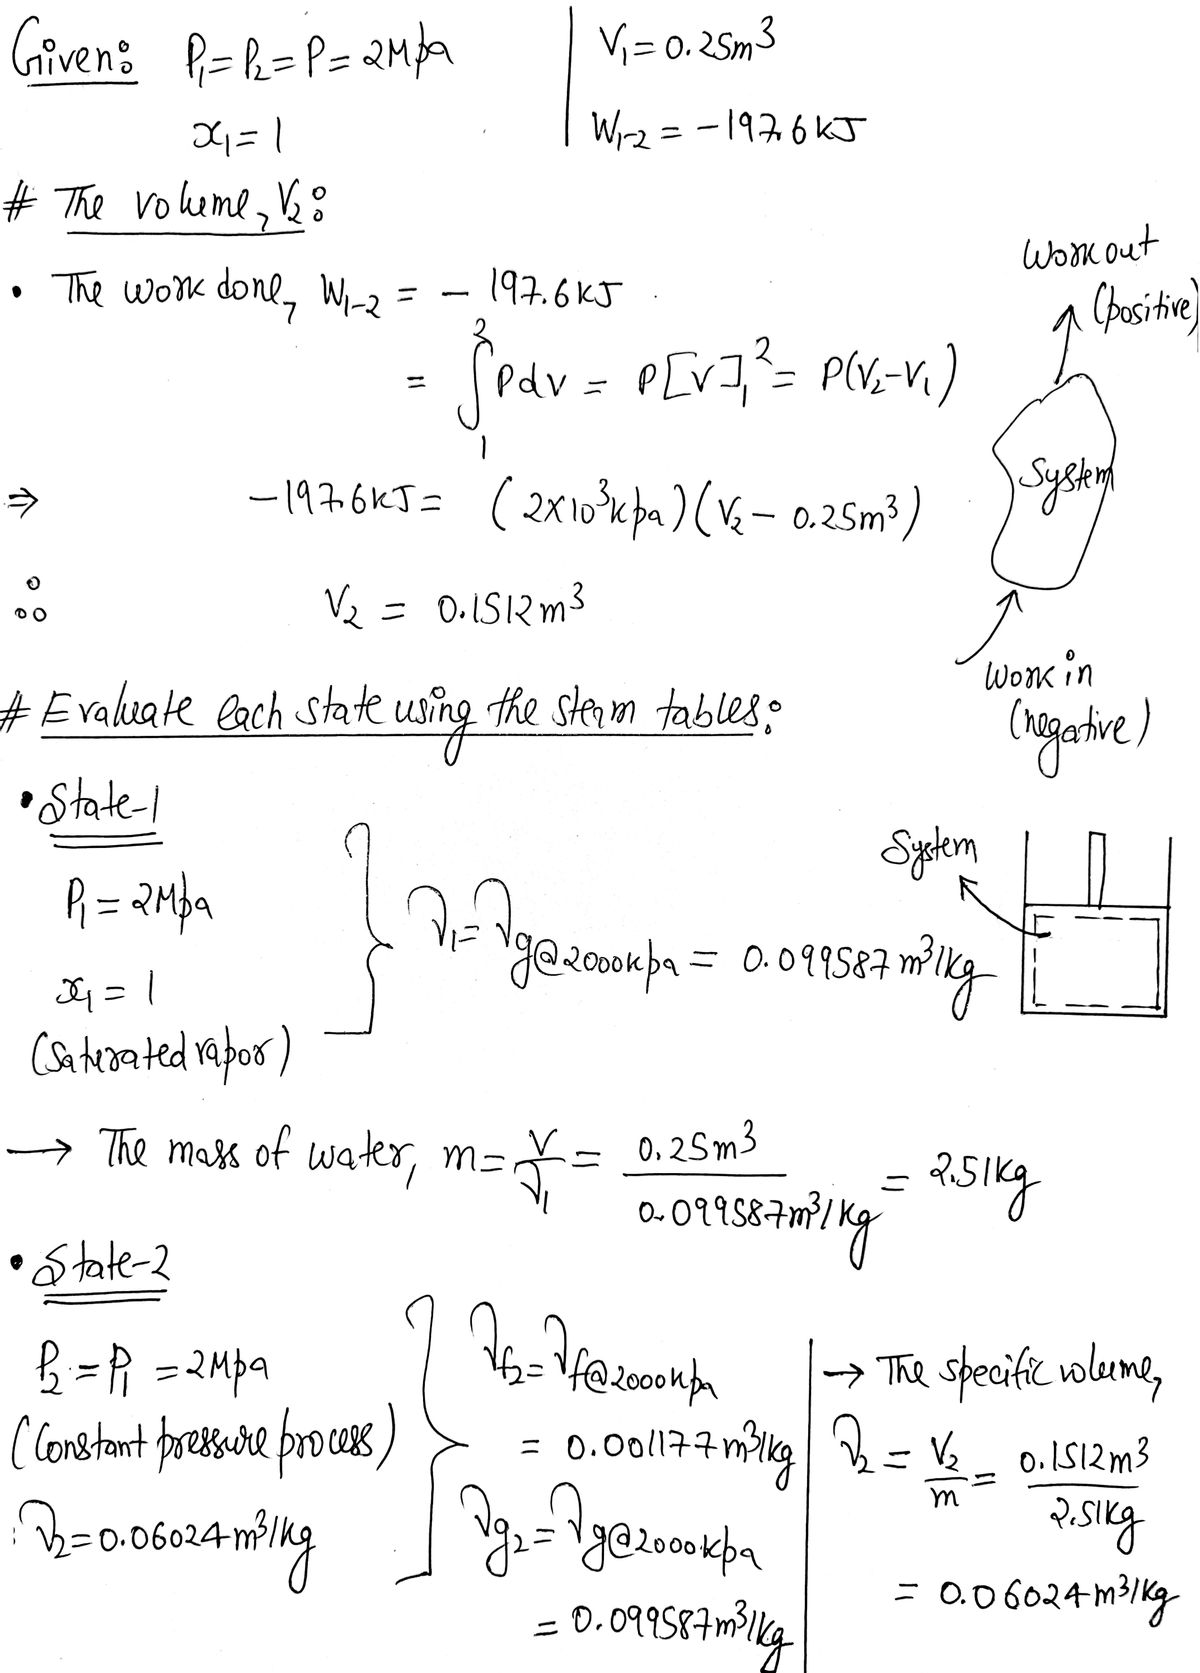 Given: P₁ = P₂ = P = 2Mpa
x₁ = 1
V₁ = 0.25m³
W₁₋₂ = -197.6 KJ
# The volume, V₂:
• The work done, W₁₋₂ = - 197.6 KJ
= ∫₁² Pdv = P[V]₁² = P(V₂-V₁)
⇒ -197.6 KJ = (2×10³Kpa)(V₂ - 0.25m³)
∴ V₂ = 0.1512m³
Work out
(positive)
System
Work in
(negative)
# Evaluate each state using the steam tables:
• State-1
P₁ = 2Mpa
x₁ = 1
(Saturated vapor)
ν₁ = νg@2000Kpa = 0.099587 m³/kg
System
→ The mass of water, m = V/ν₁ = 0.25m³/0.099587m³/kg = 2.51kg
• State-2
P₂ = P₁ = 2Mpa
(Constant pressure process)
ν₂ = 0.06024m³/kg
νf₂ = νf@2000Kpa
= 0.001177m³/kg
νg₂ = νg@2000Kpa
= 0.099587m³/kg
→ The specific volume,
ν₂ = V₂/m = 0.1512m³/2.51kg
= 0.06024m³/kg